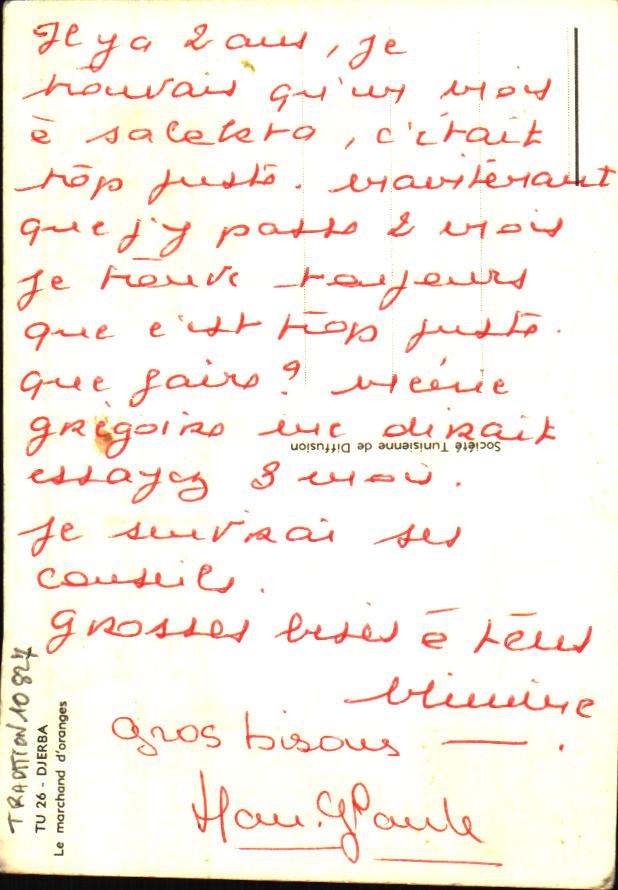 Il y a 2 ans, je
trouvais qu'un mois
à Salakta, c'était
trop juste. Maintenant
que j'y passe 2 mois
je trouve toujours
que c'est trop juste.
que faire ? Ménie
Grégoire me dirait
essayez 3 mois.
Je suivrai ses
conseils.
Grosses bises à tous
Gros bisous — .
Société Tunisienne de Diffusion
TRADITION/10 824
TU 26 - DJERBA
Le marchand d'oranges